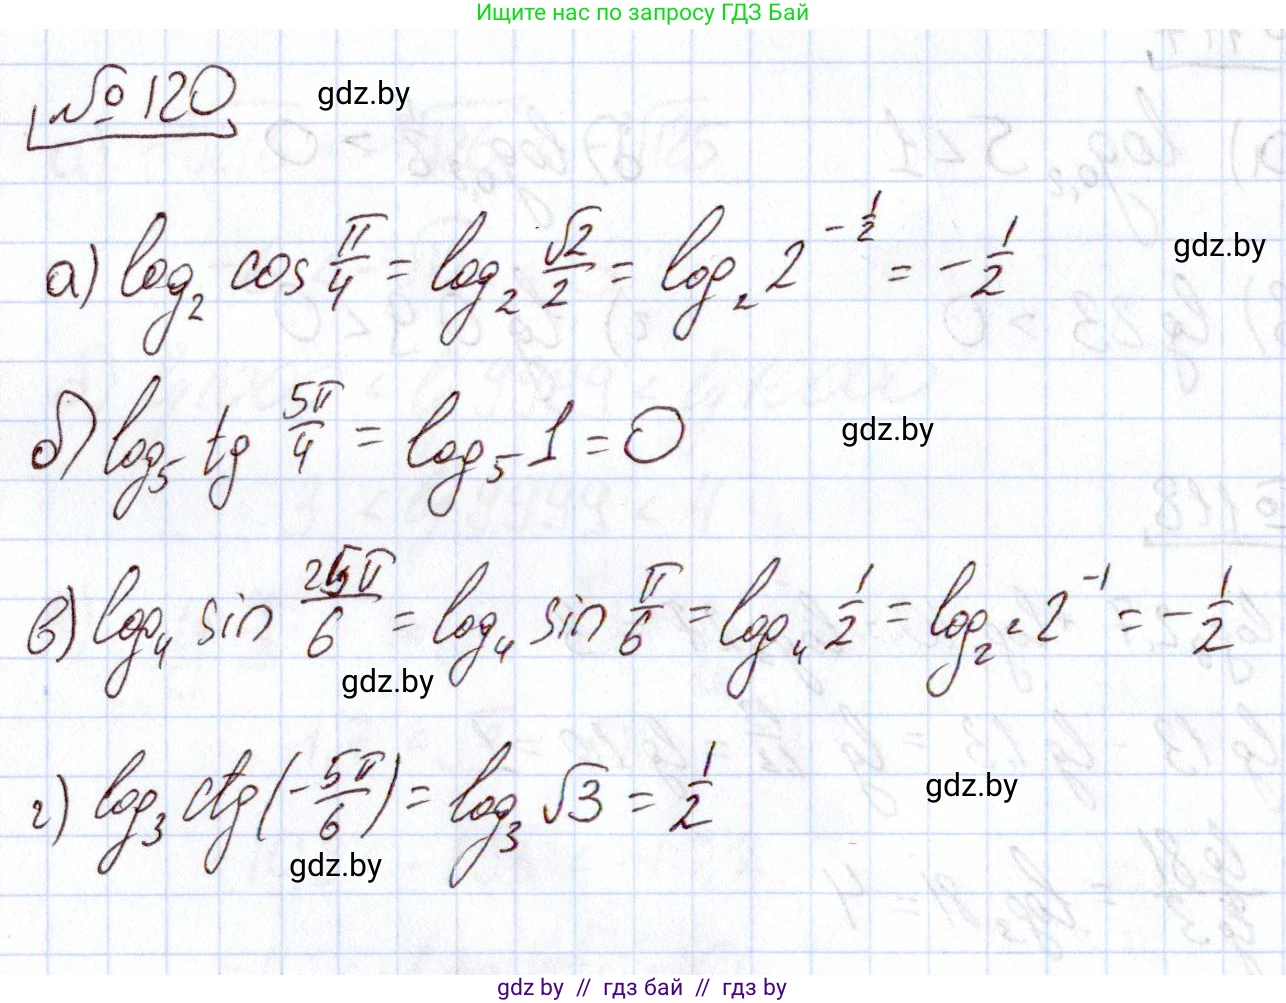 Ищите нас по запросу ГДЗ Бай
№ 120
gdz.by
а) log₂ cos π/4 = log₂ √2/2 = log₂ 2^(-1/2) = -1/2
gdz.by
б) log₅ tg 5π/4 = log₅ 1 = 0
gdz.by
в) log₄ sin 25π/6 = log₄ sin π/6 = log₄ 1/2 = log₂² 2⁻¹ = -1/2
gdz.by
г) log₃ ctg(-5π/6) = log₃ √3 = 1/2
gdz.by
gdz.by
gdz by // гдз бай // гдз by